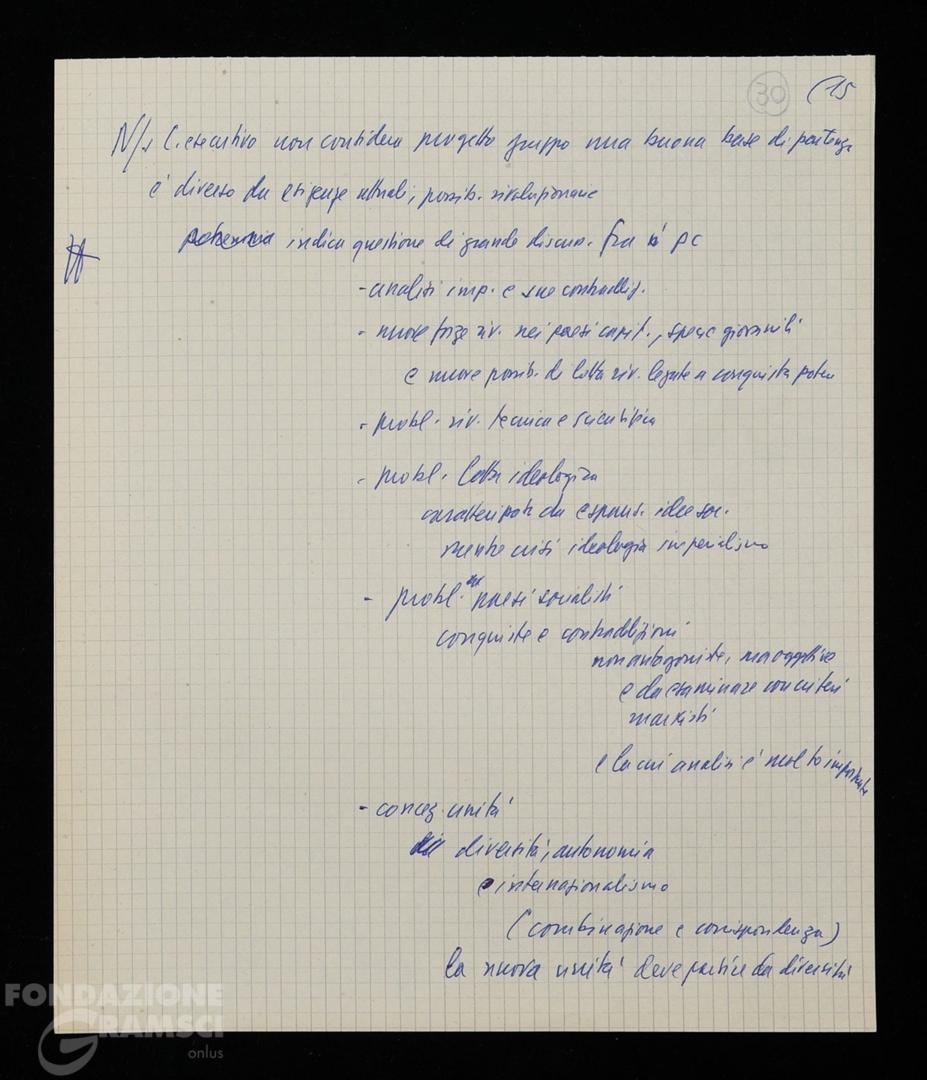 30
15
N/s C. esecutivo non considera progetto gruppo una buona base di partenza
è diverso da esigenze attuali, possib. rivoluzionarie
indica questione di grande discuss. fra i pc
- analisi imp. e sue contraddiz.
- nuove forze riv. nei paesi capit., specie giovanili
e nuove possib. di lotta riv. legate a conquista potere
- probl. riv. tecnica e scientifica
- probl. lotta ideologica
caratterizzata da espans. idee soc.
mentre crisi ideologia imperialismo
- probl. paesi socialisti
conquiste e contraddizioni
non antagoniste, ma oggettive
e da esaminare con criteri
marxisti
e la cui analisi è molto importante
- concez. unità
diversità, autonomia
e internazionalismo
(combinazione e corrispondenza)
la nuova unità deve partire da diversità
FONDAZIONE
GRAMSCI
onlus